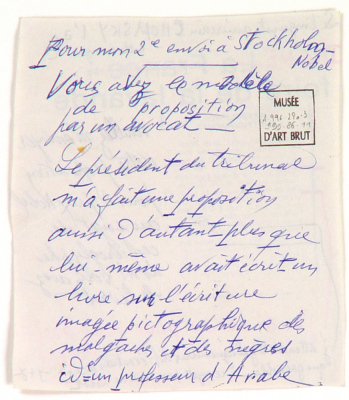 Pour mon 2e envoi à Stockholm-
Nobel
Vous avez le modèle
de proposition
par un avocat —
MUSÉE
D'ART BRUT
Le président du tribunal
m'a fait une proposition
aussi d'autant plus que
lui-même avait écrit un
livre sur l'écriture
imagée pictographique des
malgaches et des nègres
id=un professeur d'Arabe